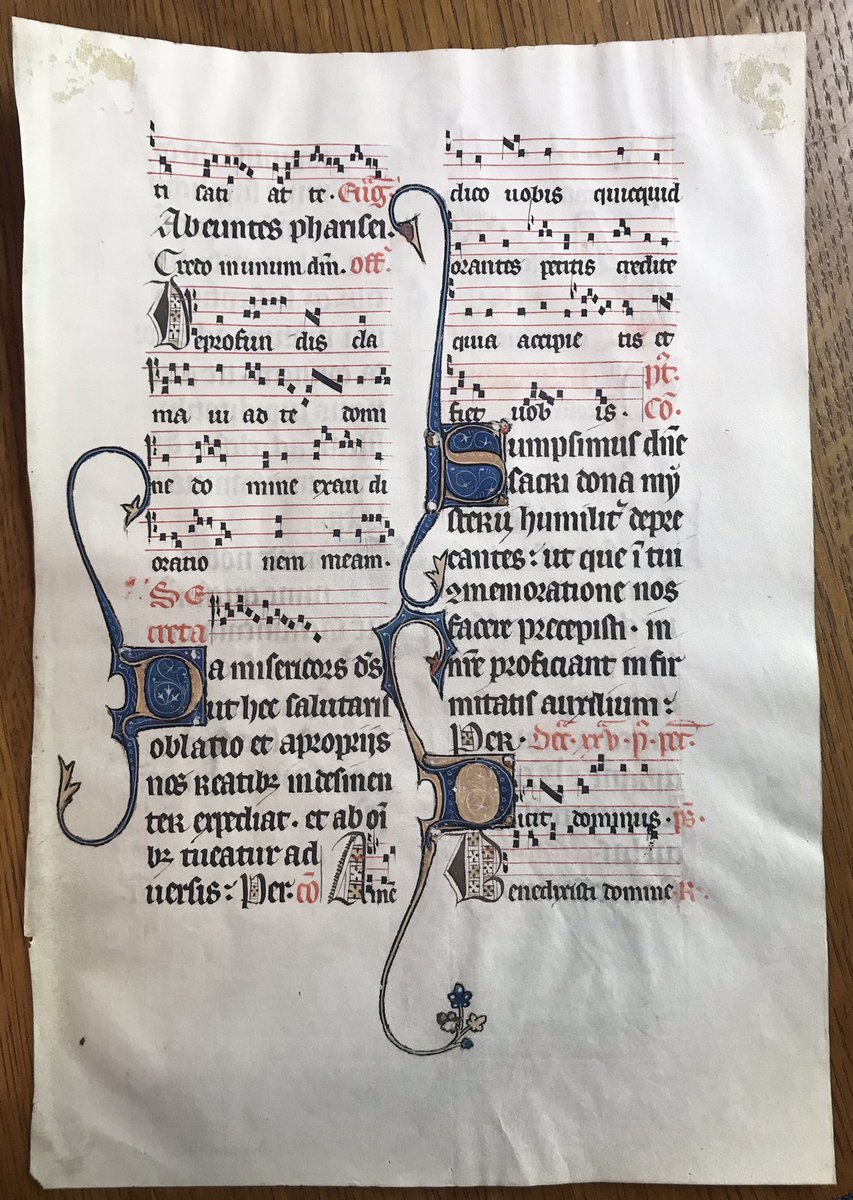 ti sati at te. Eu̅g̅.
Abeuntes pharisei.
Credo in unum dm̅. off̅.
Deprofun dis cla
ma ui ad te domi
ne do mine exau di
oratio nem meam.
Se
creta
Da misericors ds̅
ut hec salutaris
oblatio et a proprijs
nos reatibꝫ indesinen
ter expediat. et ab oi̅
bꝫ tueatur ad
uersis: Per. co̅ Ame̅
dico uobis quicquid
orantes petitis credite
quia accipie tis et
fiet uob is. co̅.
Sumpsimus dn̅e
sacri dona my
sterii humilit̉ depre
cantes: ut que i̅ tui
ꝯmemoratione nos
facere precepisti. in
nr̅e proficiant infir
mitatis auxilium:
Per. Dc̅a. xxv. p̅. pe̅t.
Dicit dominus. ps̅.
Benedixisti domine R.